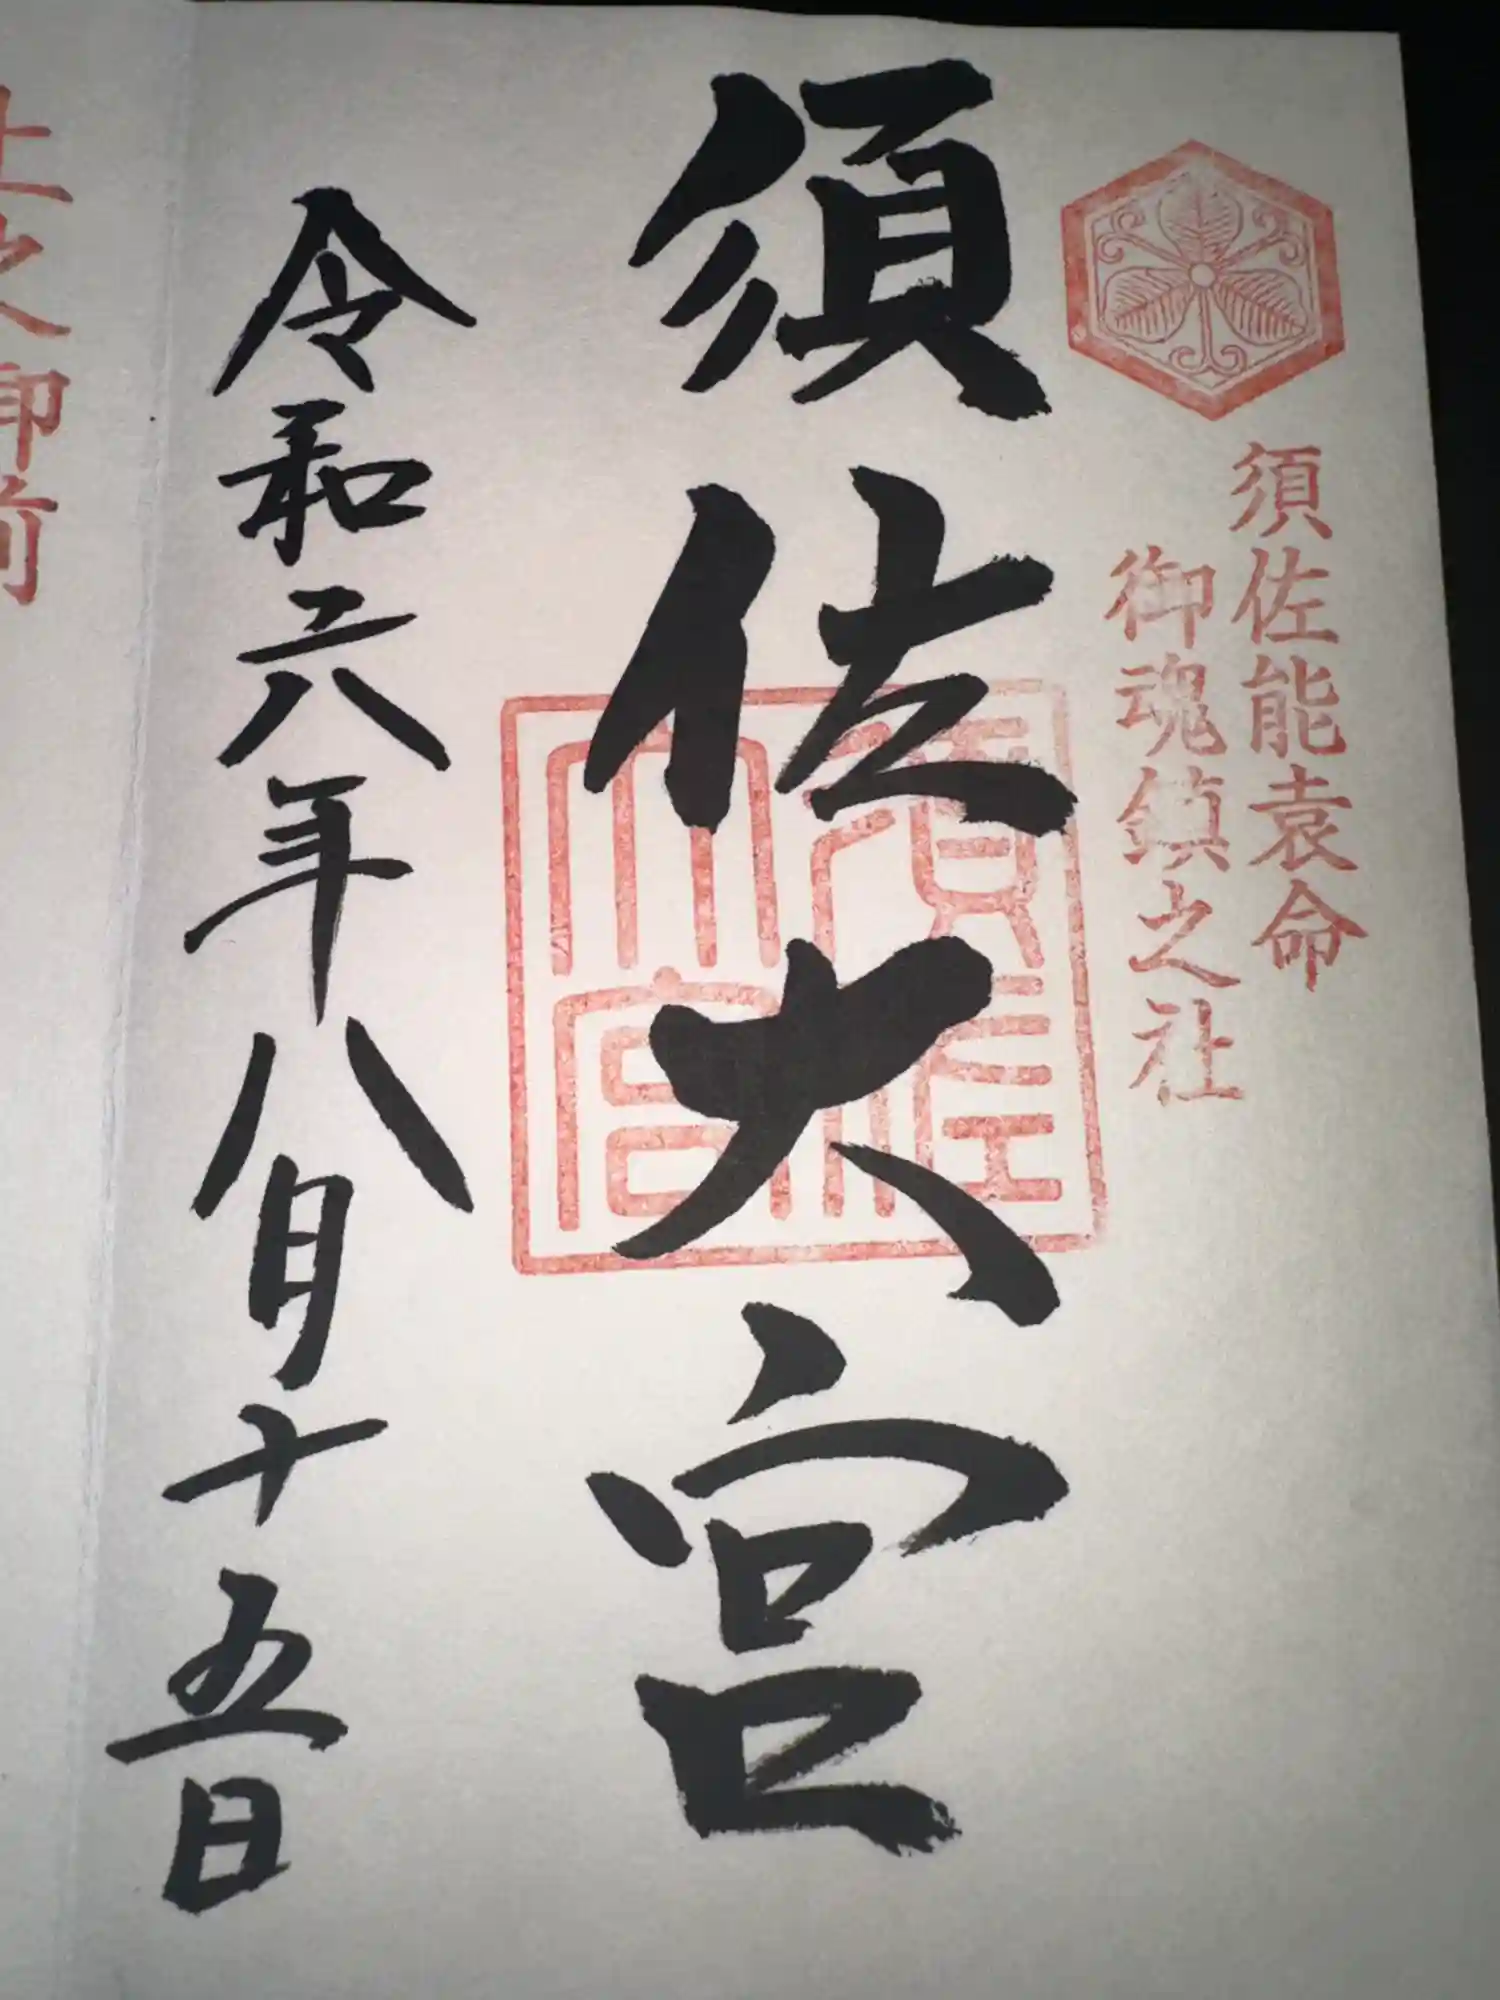 須佐能袁命
御魂鎮之社
須佐大宮
須佐大宮
令和六年八月十五日
社之御前